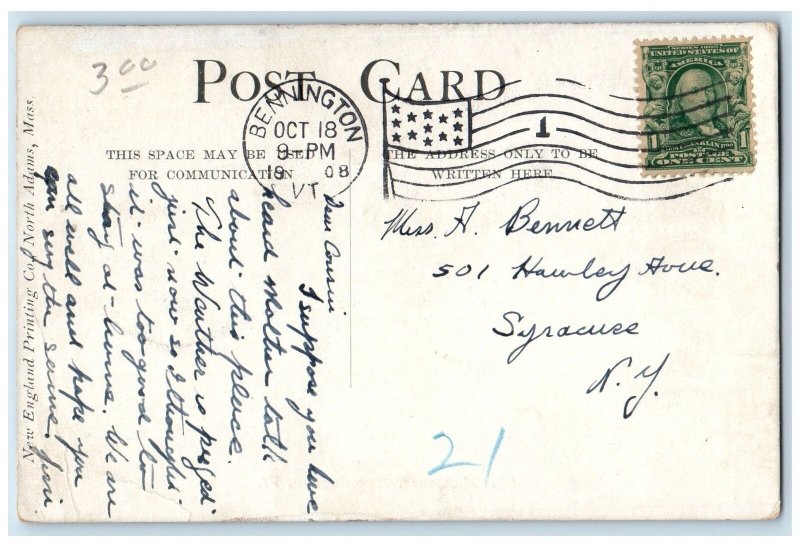 3.00
POST CARD
BENNINGTON
OCT 18
9-PM
1908
VT.
1
SERIES 1902
UNITED STATES OF
AMERICA
FRANKLIN
POSTAGE
ONE CENT
THIS SPACE MAY BE USED
FOR COMMUNICATION
THE ADDRESS ONLY TO BE
WRITTEN HERE
New England Printing Co., North Adams, Mass.
Dear Cousin
I suppose you have
heard Mother talk
about this place.
The Weather is
just now so I thought
it was too good to
stay at home. We are
all well and hope you
can say the same.
Miss. H. Bennett
501 Hawley Ave.
Syracuse
N.Y.
21